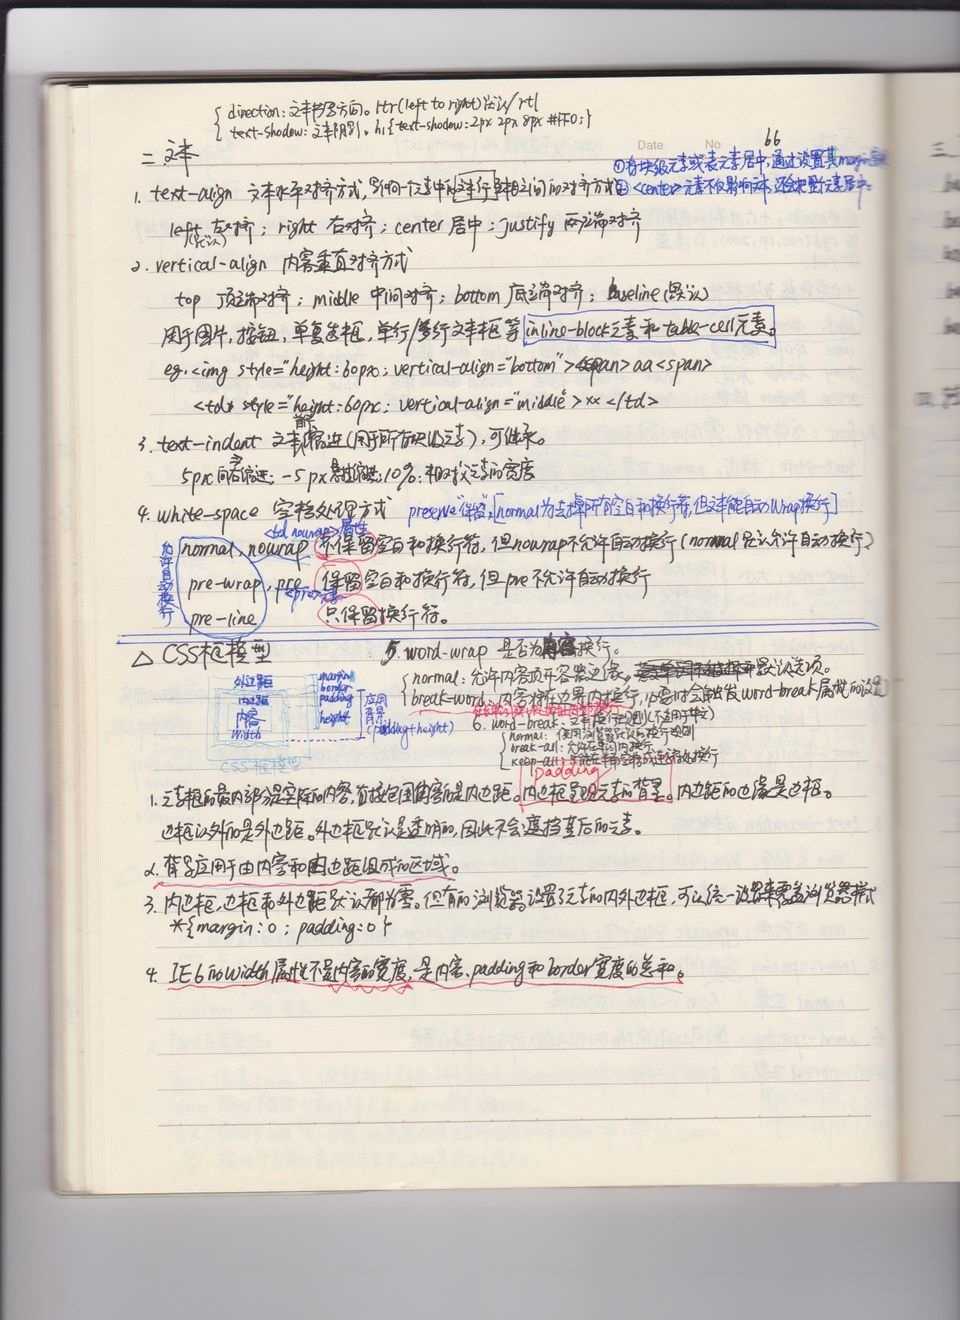 direction:文本书写方向。ltr(left to right)默认/rtl
text-shadow:文本阴影。h1{text-shadow:2px 2px 8px #FF0;}
Date No
66
二 文本
①将块级元素或表元素居中,通过设置其margin
②<center>元素不仅影响文本,还会把整个元素居中。
1. text-align 文本水平对齐方式,影响一个元素中的文本行互相之间的对齐方式
left 左对齐; right 右对齐; center 居中; justify 两端对齐
(默认)
2. vertical-align 内容垂直对齐方式
top 顶端对齐; middle 中间对齐; bottom 底端对齐; baseline(默认)
用于图片,按钮,单复选框,单行/多行文本框等inline-block元素和table-cell元素。
eg.<img style="height:60px; vertical-align="bottom"><span>aa<span>
<td style="height:60px; vertical-align="middle">xx</td>
3. text-indent 文本缩进(用于所有块级元素),可继承。
5px 向右缩进; -5px 悬挂缩进;10%:相对父元素的宽度
4. white-space 空格处理方式 preserve"保留"。[normal为去掉所有空白和换行符,但文本能自动wrap换行]
<td nowrap>属性
允许自动换行
normal, nowrap 不保留空白和换行符,但nowrap不允许自动换行(normal默认允许自动换行)
pre-wrap, pre 保留空白和换行符,但pre不允许自动换行
<pre>元素
pre-line 只保留换行符。
△ CSS框模型
外边距
内边距
内容
width
margin
border
padding
height
应用背景
(padding+height)
CSS框模型
5. word-wrap 是否为内容换行。
normal:允许内容顶开容器边缘,默认选项。
break-word:内容将在边界内换行,必要时会触发word-break属性的设置
6. word-break:
normal: 使用浏览器默认的换行规则
break-all:允许在单词内换行
keep-all:只能在半角空格或连字符处换行
padding
1. 元素框的最内部分是实际的内容,直接包围内容的是内边距。内边框呈现元素的背景。内边距的边缘是边框。
边框以外的是外边距。外边框默认是透明的,因此不会遮挡其后的元素。
2. 背景应用于由内容和内边距组成的区域。
3. 内边框,边框和外边距默认都为零。但有的浏览器设置了元素的内外边框,可以统一设置来覆盖浏览器样式
*{margin:0; padding:0}
4. IE6的width属性不是内容的宽度,是内容,padding和border宽度的总和。